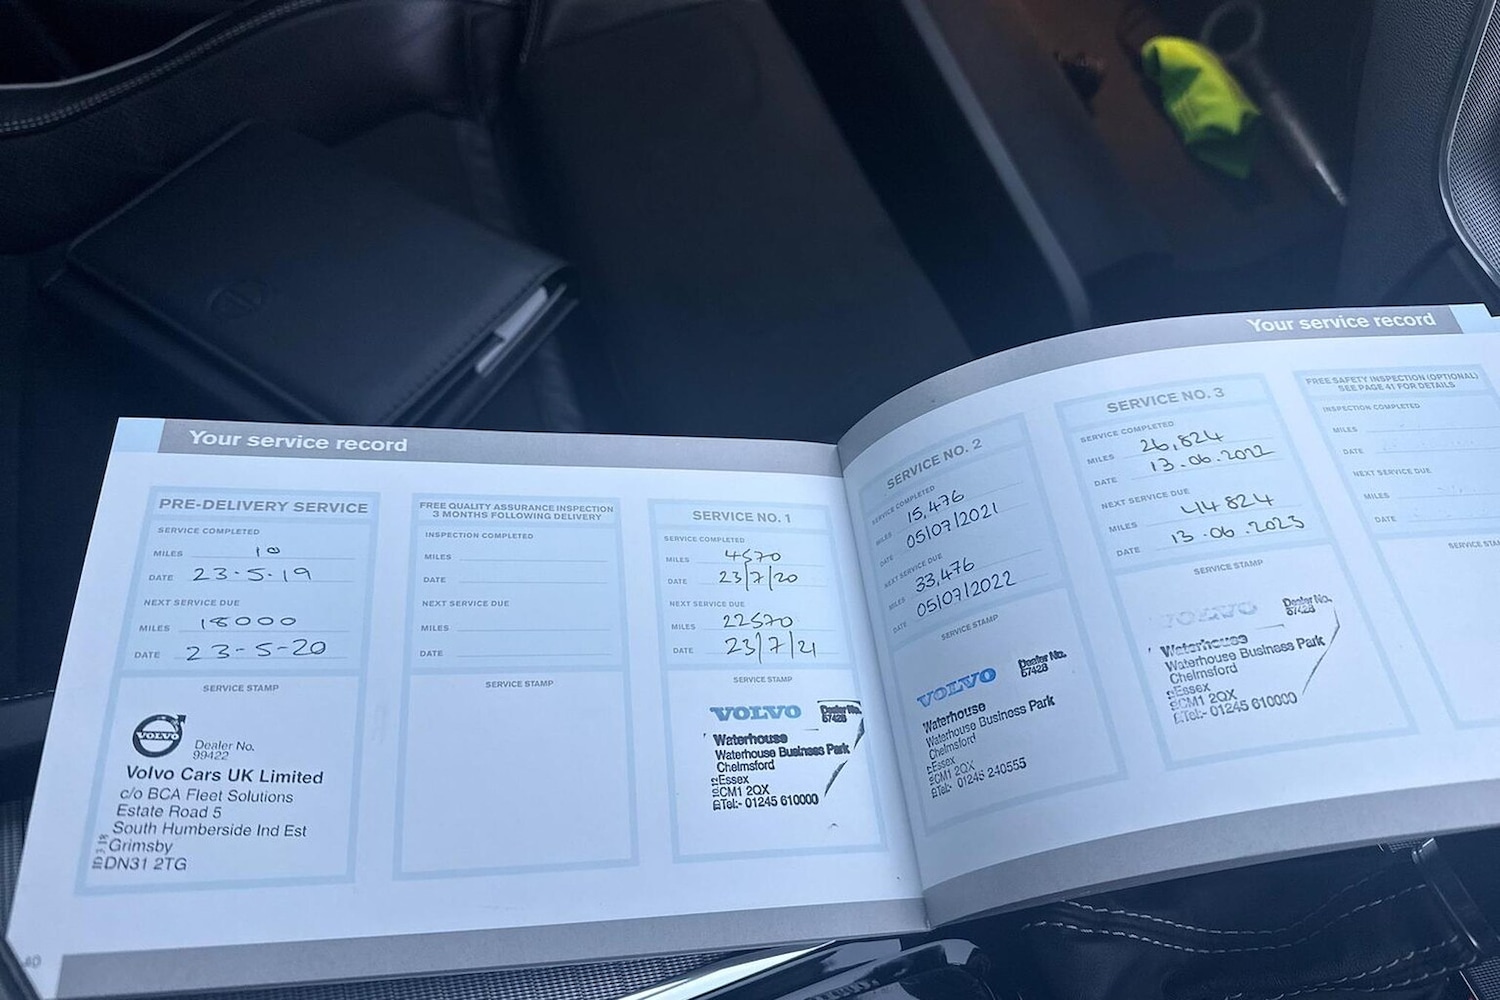 Your service record
PRE-DELIVERY SERVICE
SERVICE COMPLETED
MILES 10
DATE 23-5-19
NEXT SERVICE DUE
MILES 18000
DATE 23-5-20
SERVICE STAMP
VOLVO
Dealer No.
99422
Volvo Cars UK Limited
c/o BCA Fleet Solutions
Estate Road 5
South Humberside Ind Est
Grimsby
DN31 2TG
40
FREE QUALITY ASSURANCE INSPECTION
3 MONTHS FOLLOWING DELIVERY
INSPECTION COMPLETED
MILES
DATE
NEXT SERVICE DUE
MILES
DATE
SERVICE STAMP
SERVICE NO. 1
SERVICE COMPLETED
MILES 4570
DATE 23/7/20
NEXT SERVICE DUE
MILES 22570
DATE 23/7/21
SERVICE STAMP
VOLVO
Dealer No.
57428
Waterhouse
Waterhouse Business Park
Chelmsford
Essex
CM1 2QX
Tel:- 01245 610000
Your service record
SERVICE NO. 2
SERVICE COMPLETED
MILES 15,476
DATE 05/07/2021
NEXT SERVICE DUE
MILES 33,476
DATE 05/07/2022
SERVICE STAMP
VOLVO
Dealer No.
57428
Waterhouse
Waterhouse Business Park
Chelmsford
Essex
CM1 2QX
Tel:- 01245 240555
SERVICE NO. 3
SERVICE COMPLETED
MILES 26,824
DATE 13.06.2022
NEXT SERVICE DUE
MILES 44824
DATE 13.06.2023
SERVICE STAMP
VOLVO
Dealer No.
57428
Waterhouse
Waterhouse Business Park
Chelmsford
Essex
CM1 2QX
Tel:- 01245 610000
FREE SAFETY INSPECTION (OPTIONAL)
SEE PAGE 41 FOR DETAILS
INSPECTION COMPLETED
MILES
DATE
NEXT SERVICE DUE
MILES
DATE
SERVICE STA